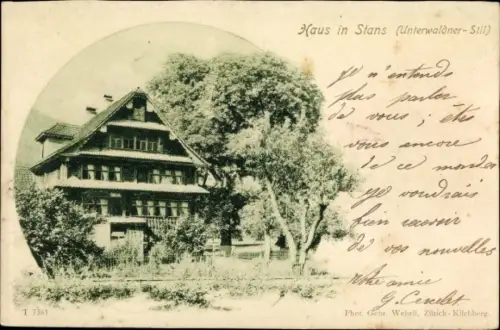 Haus in Stans (Unterwaldner-Stil)
Je n'entends
plus parler
de vous; êtes
vous encore
de ce monde
Je voudrais
bien recevoir
de vos nouvelles
Votre amie
T 7361
Phot. Gebr. Wehrli, Zürich-Kilchberg.